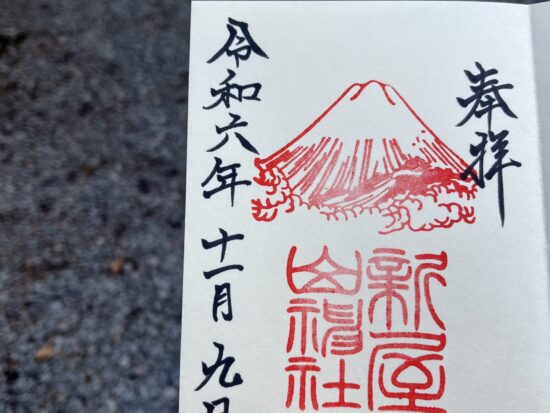 奉拝
新屋
山神社
令和六年十一月九日